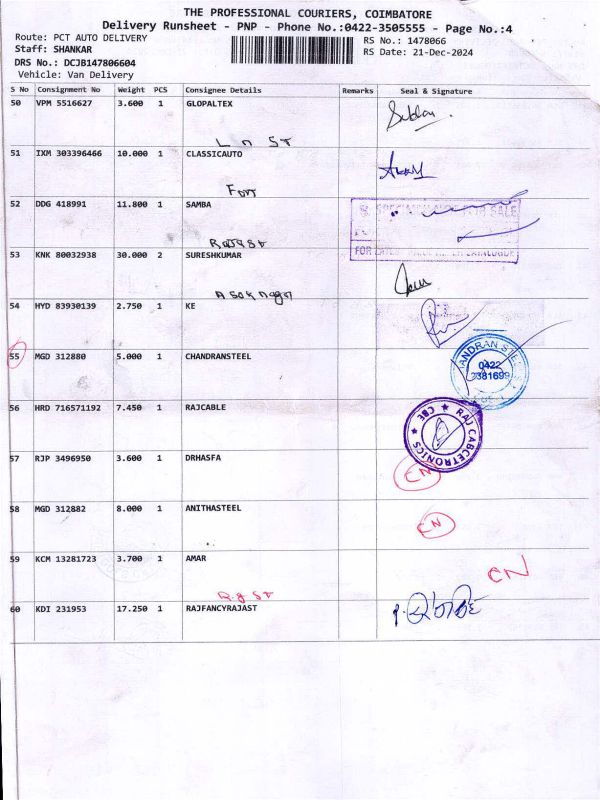 THE PROFESSIONAL COURIERS, COIMBATORE
Delivery Runsheet - PNP - Phone No.:0422-3505555 - Page No.:4
Route: PCT AUTO DELIVERY
RS No.: 1478066
Staff: SHANKAR
RS Date: 21-Dec-2024
DRS No.: DCJB147806604
Vehicle: Van Delivery
S No Consignment No Weight PCS Consignee Details Remarks Seal & Signature
50 VPM 5516627 3.600 1 GLOPALTEX
L n St
51 IXM 303396466 10.000 1 CLASSICAUTO
Fort
52 DDG 418991 11.800 1 SAMBA
Raja St
53 KNK 80032938 30.000 2 SURESHKUMAR
Asok nagar
54 HYD 83930139 2.750 1 KE
55 MGD 312880 5.000 1 CHANDRANSTEEL
0422
2381699
56 HRD 716571192 7.450 1 RAJCABLE
RAJ CABCETRONICS ★ CBE ★
57 RJP 3496950 3.600 1 DRHASFA
CN
58 MGD 312882 8.000 1 ANITHASTEEL
CN
59 KCM 13281723 3.700 1 AMAR
CN
60 KDI 231953 17.250 1 RAJFANCYRAJAST